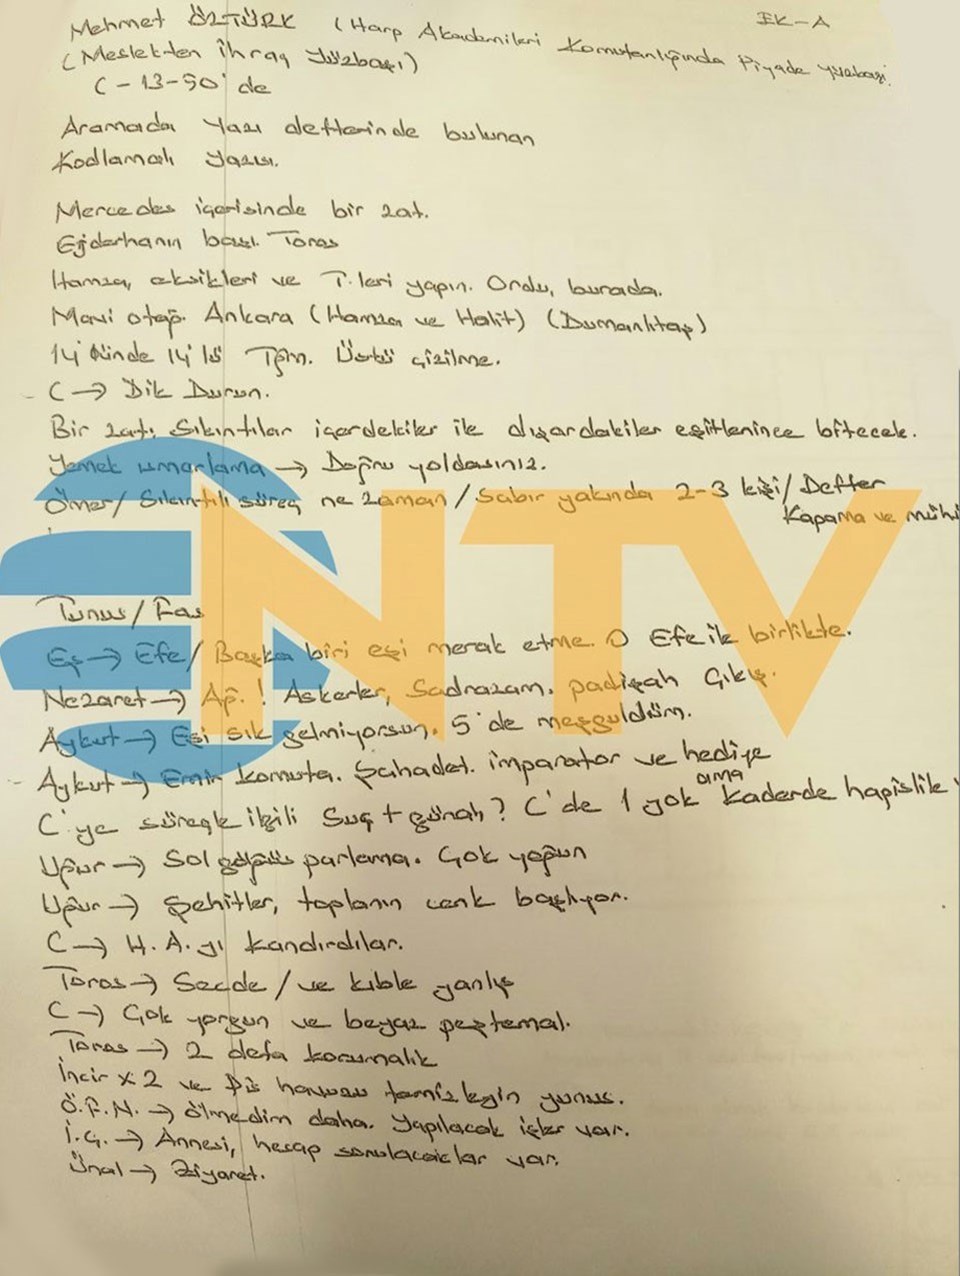 EK-A
Mehmet ÖZTÜRK (Harp Akademileri Komutanlığında Piyade yüzbaşı)
(Meslekten İhraç Yüzbaşı)
C-13-90'de
Aramada Yazı defterinde bulunan
Kodlamalı yazısı.
Mercedes içerisinde bir zat.
Ejderhanın başı. Toros
Hamza, eksikleri ve T.leri yapın. Ordu, burada.
Mavi otağ. Ankara (Hamza ve Halit) (Dumanlıtağ)
14'ünde 14'lü Tğm. Üstü çizilme.
C → Dik Durun.
Bir zatı, sıkıntılar içerdekiler ile dışardakiler eşitlenince bitecek.
Yemek ısmarlama → Doğru yoldasınız.
Ömer/ Sıkıntılı süreç ne zaman/ Sabır yakında 2-3 kişi/ Defter
Kapama ve
NTV
Tunus/Fas
Eş → Efe/ Başka biri eşi merak etme. O Efe ile birlikte.
Nezaret → Ağ.! Askerler, Sadrazam, padişah Çıkış.
Aykut → Eşi sık gelmiyorsun. 5'de meşguldüm.
Aykut → Emir komuta. Şahadet. imparator ve hediye
C'ye süreçle ilgili Suç + günah? C'de 1 yok ama kaderde hapislik
Uğur → Sol göğüs parlama. Çok yoğun
Uğur → Şehitler, toplanın cenk başlıyor.
C → H.A.yı kandırdılar.
Toros → Secde / ve kıble yanlış
C → Çok yorgun ve beyaz peştemal.
Toros → 2 defa korumalık
İncir x2 ve Diş havuzu temizleyin yunus.
Ö.F.N. → Ölmedim daha. Yapılacak işler var.
İ.G. → Annesi, hesap sorulacaklar var.
Ünal → Ziyaret.